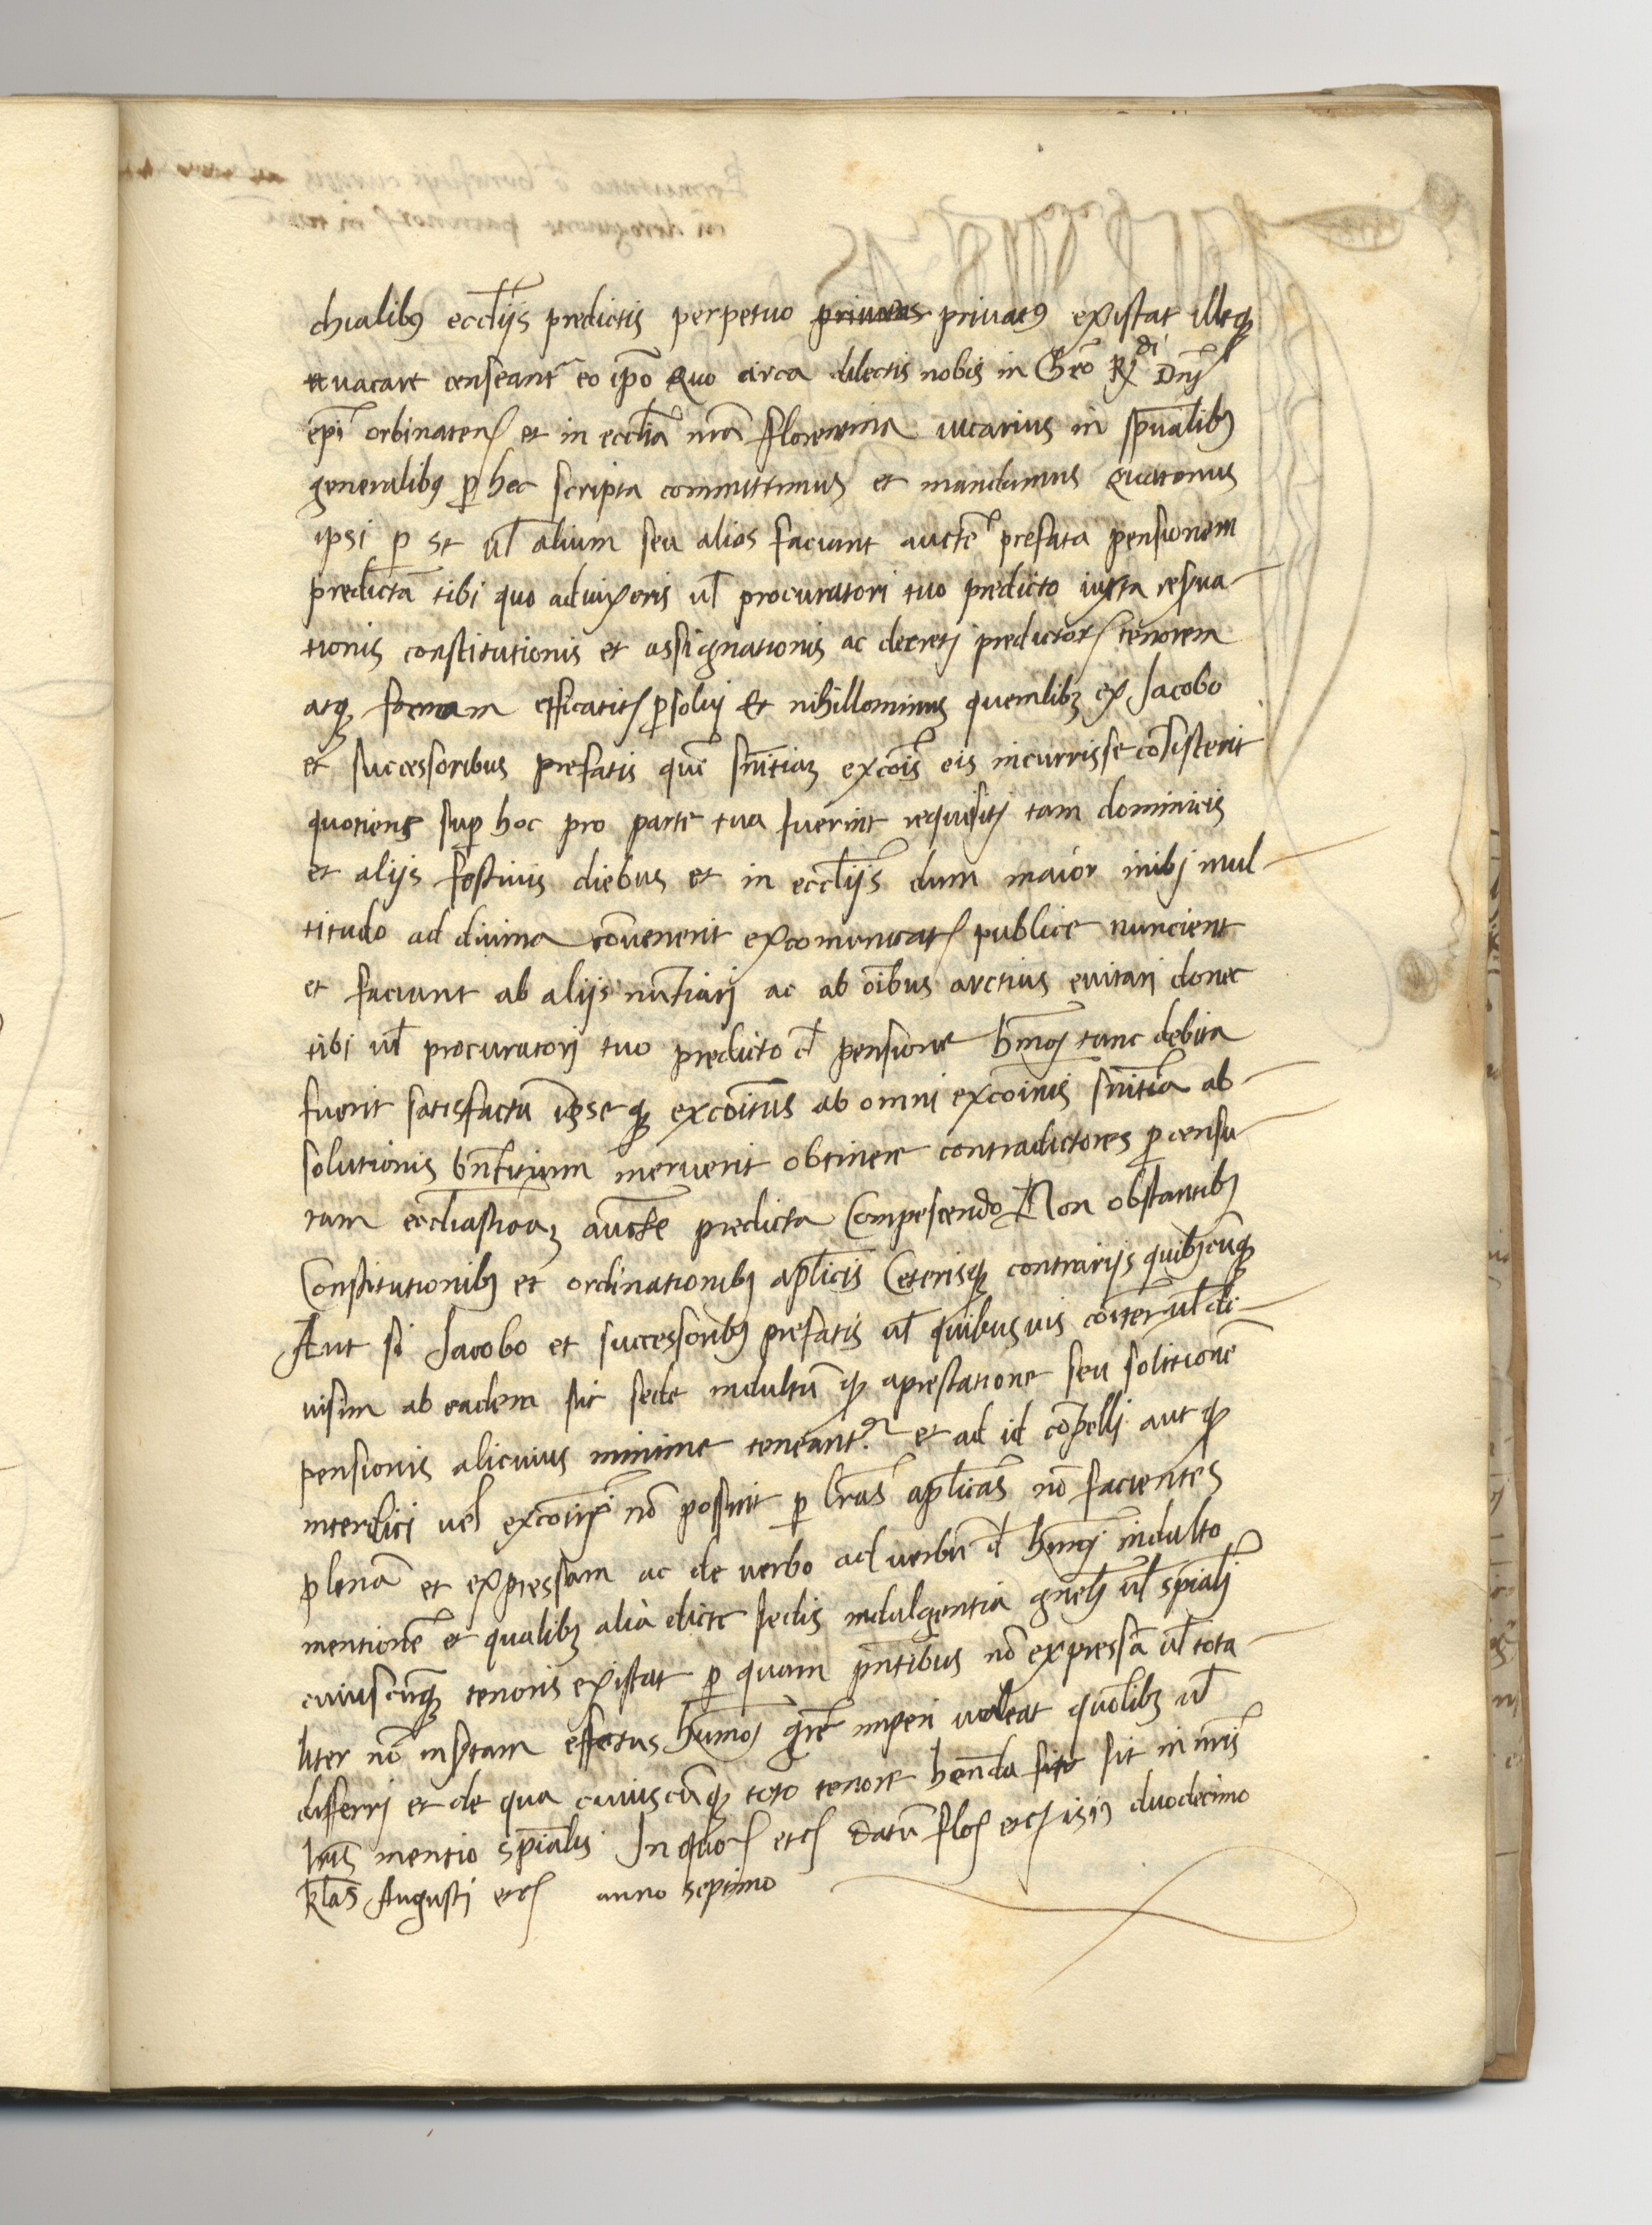 chialibꝰ eccl̄ijs predictis perpetuo privatus privatꝰ existat illeqꝫ
vacare censeant᷑ eo ip̄o Quo circa dilectis nobis in Dn̄i
ep̄i orbinaten̄ et in eccl̄ia nr̄a florentina vicarius in sp̄ualibꝫ
generalibꝰ ꝑ hec scripta committimus et mandamus Quatenus
ipsi ꝑ se ul̄ alium seu alios faciant aucte᷑ prefata pensionem
predictā tibi quo ad vixeris ul̄ procuratori tuo predicto iuxta resꝑua
tionis constitutionis et assignationis ac decretj predictoꝝ tenorem
atqꝫ formam efficacitꝭ ꝑsolvj Et nihillominus quemlibꝫ ex Jacobo
et successoribus prefatis quē sn̄tiaꝫ excōis eis incurrisse cōstiterit
quotiens suꝑ hoc pro parte tua fuerint requisitj tam dominicis
et alijs festivis diebus et in eccl̄ijs dum maior inibj mul
titudo ad divina cōvenerit excomunicatꝭ publice nuncient
et faciant ab alijs nūtiarj ac ab oībus arctius evitari donec
tibi ul̄ procuratorj tuo predicto đ pensione hm̄oj tunc debita
fuerit satisfactū ipseqꝫ excōitus ab omni excōinis sn̄tia ab
solutionis bn̄fitium meruerit obtinere contradictores ꝑ censu
ram eccl̄iasticaꝫ auctē predicta Compescendo Non obstantibꝫ
Constitutionibꝫ et ordinationibꝫ apl̄icis Ceterisqꝫ contrarijs quibꝫcūqꝫ
Aut si Jacobo et successoribꝫ prefatis ul̄ quibusvis cōiter ul̄ di
visim ab eadem sit sede indultū qꝫ aprestatione seu solutionē
pensionis alicuius minime teneant᷑ et ad id cōpelli aut qꝫ
interdici vel excōi nō possint ꝑ lr̄as apl̄icas nō facientes
plenā et expressam ac de verbo ad verbū đ hm̄oj indulto
mentionē et qualibꝫ alia dicte sedis indulgentia gn̄alj ul̄ sp̄ialj
cuiuscūqꝫ tenoris existat ꝑ quam pn̄tibus nō expressā ul̄ tota
liter nō insꝑtam effectus hm̄oj gr̄e imperi valeat quolibꝫ ul̄
differrj et de qua cuiuscūqꝫ toto tenore hēnda sit in nr̄is
lr̄is mentio sp̄ialis In quoꝝ etcꝭ Datū floꝭ etcꝭ duodecimo
kl̄as Augustj etcꝭ anno septimo